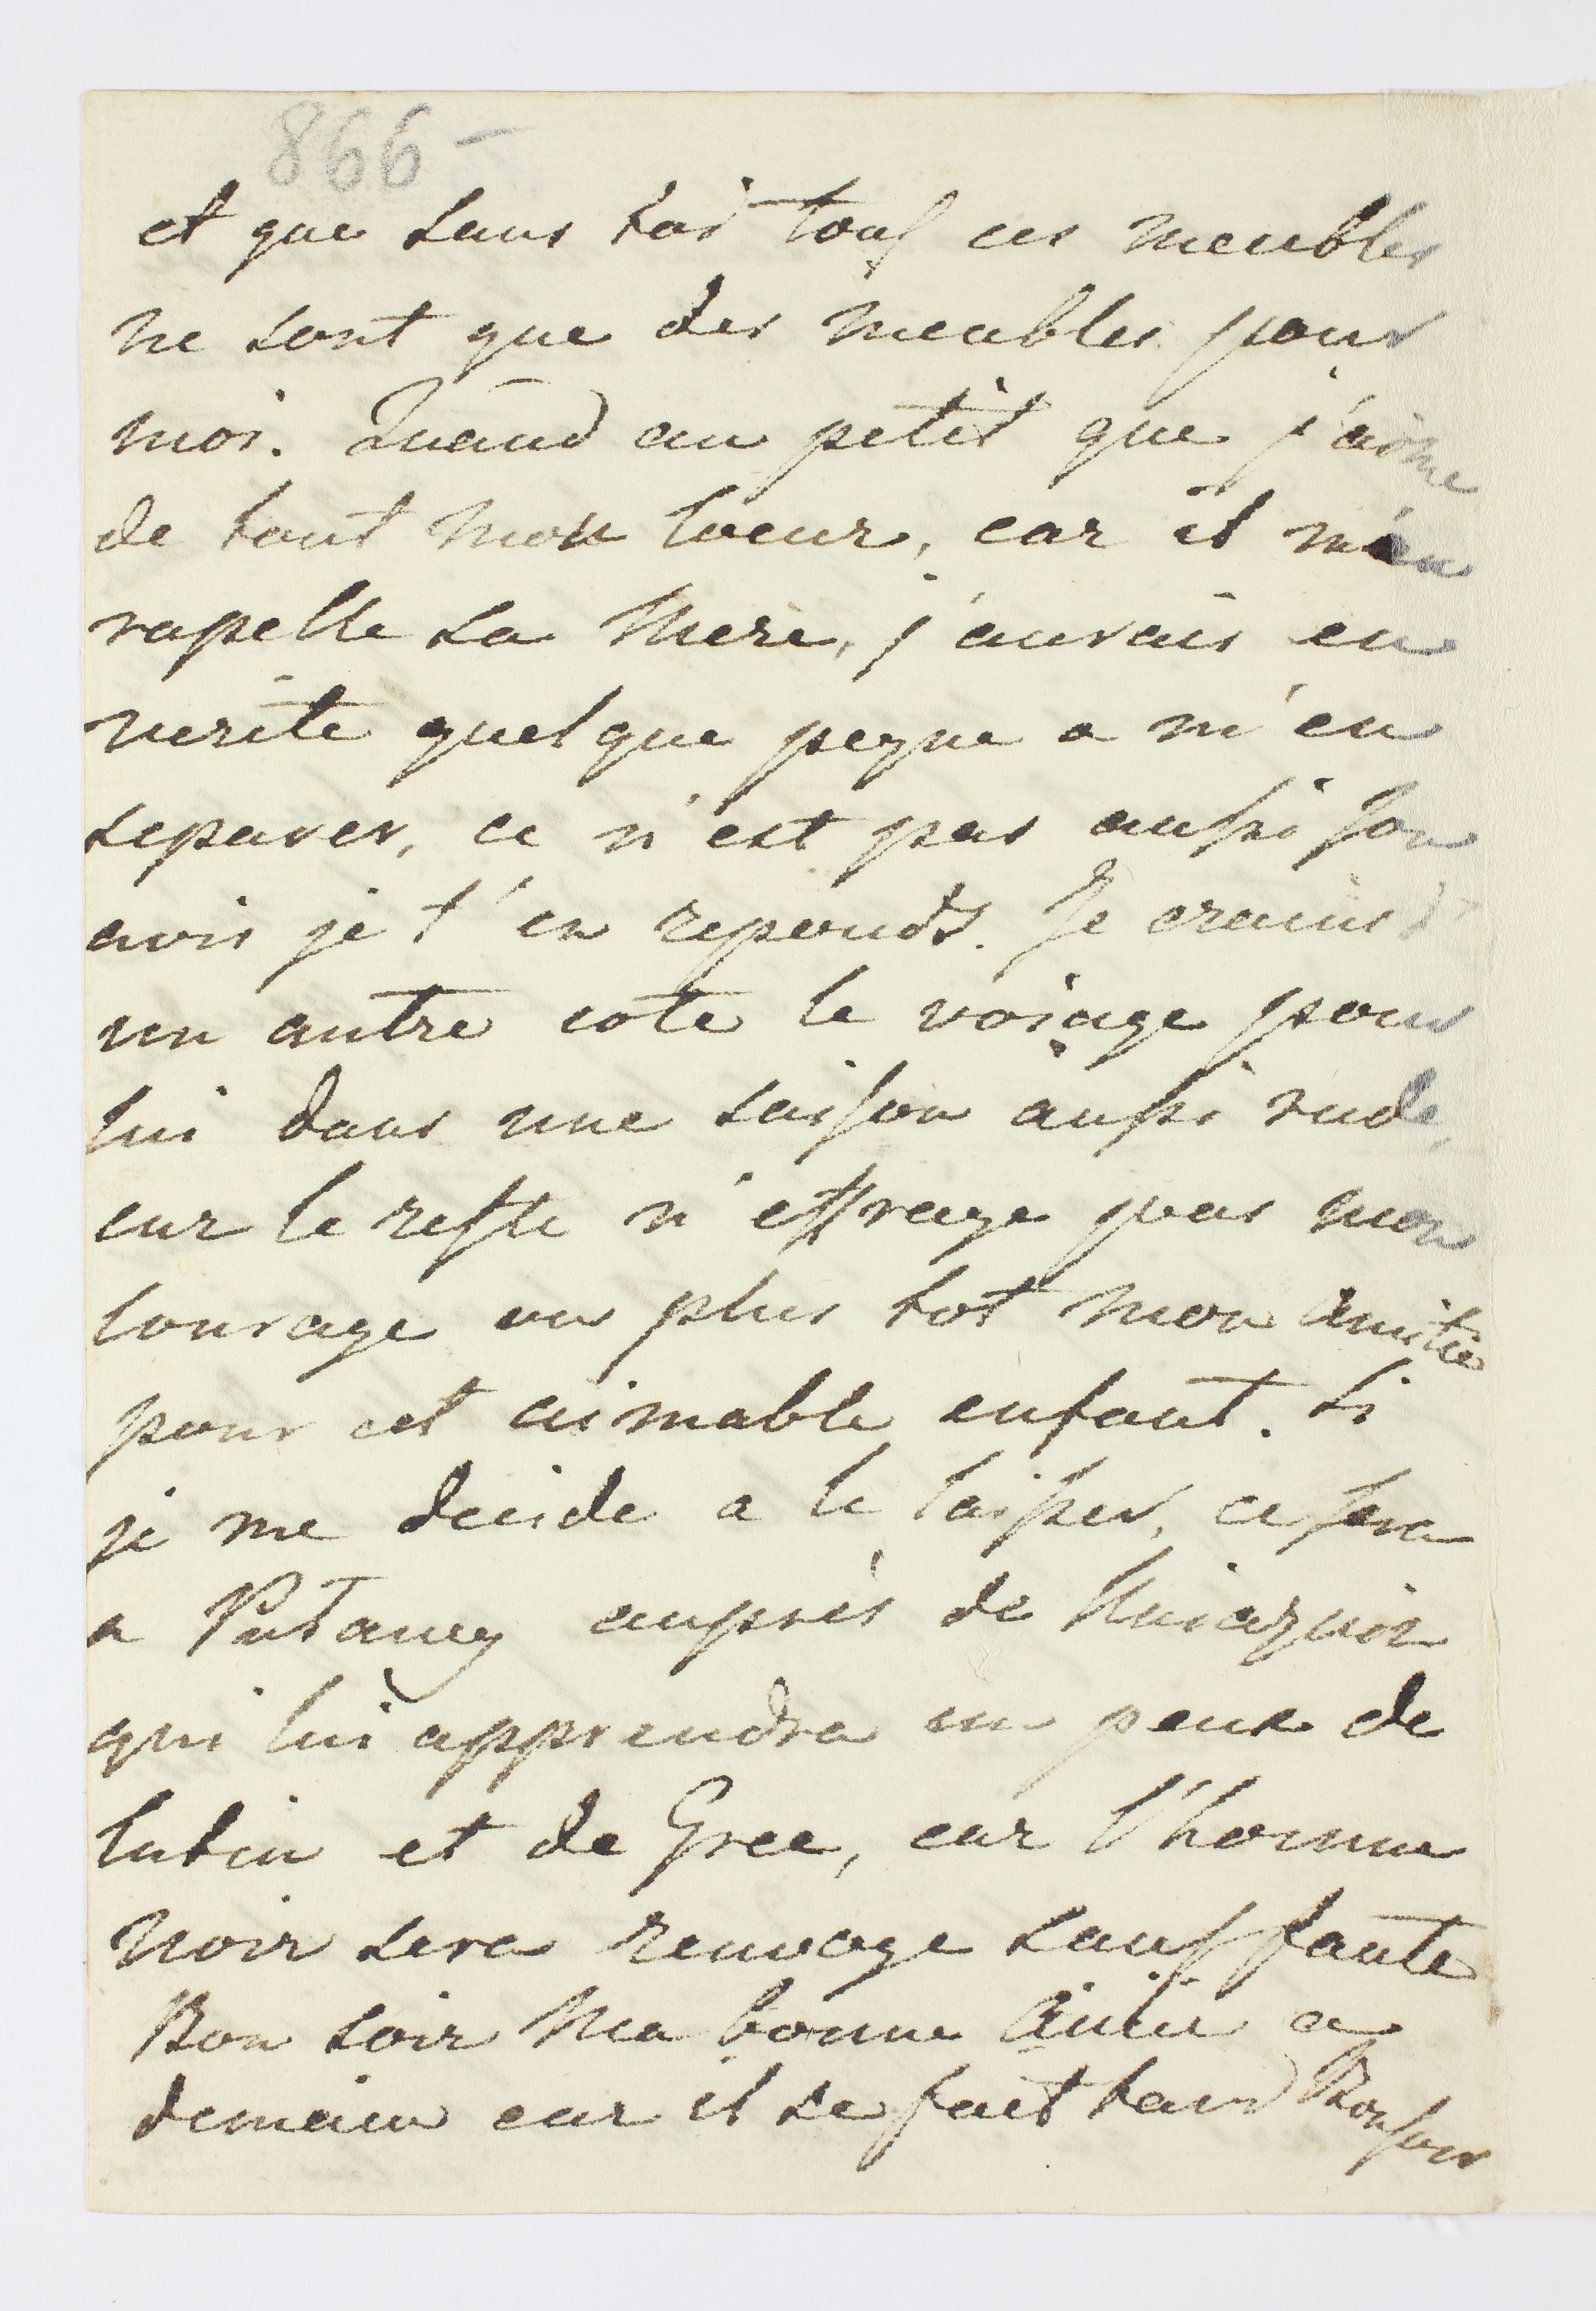 866 –
et que sans toi tous ces meubles
ne sont que des meubles pour
moi. Quand au petit que j'aime
de tout mon coeur, car il m'en
rapelle sa mere, j'aurais en
verite quelque peyne a m'en
separer, ce n'est pas aussi son
avis je t'en reponds. Je crains d'
un autre cote le voiage pour
lui dans une saison aussi rude,
car le reste n'effraye pas mon
courage ou plus tot mon amitie
pour cet aimable enfant. Si
je me decide a le laisser, ce sera
a Putawy aupres de
qui lui apprendra un peux de
latin et de Grec, car l'homme
noir sera renvoye sauf faute
Bon soir Ma bonne Amie a
demain car il se fait tard Bonsoir